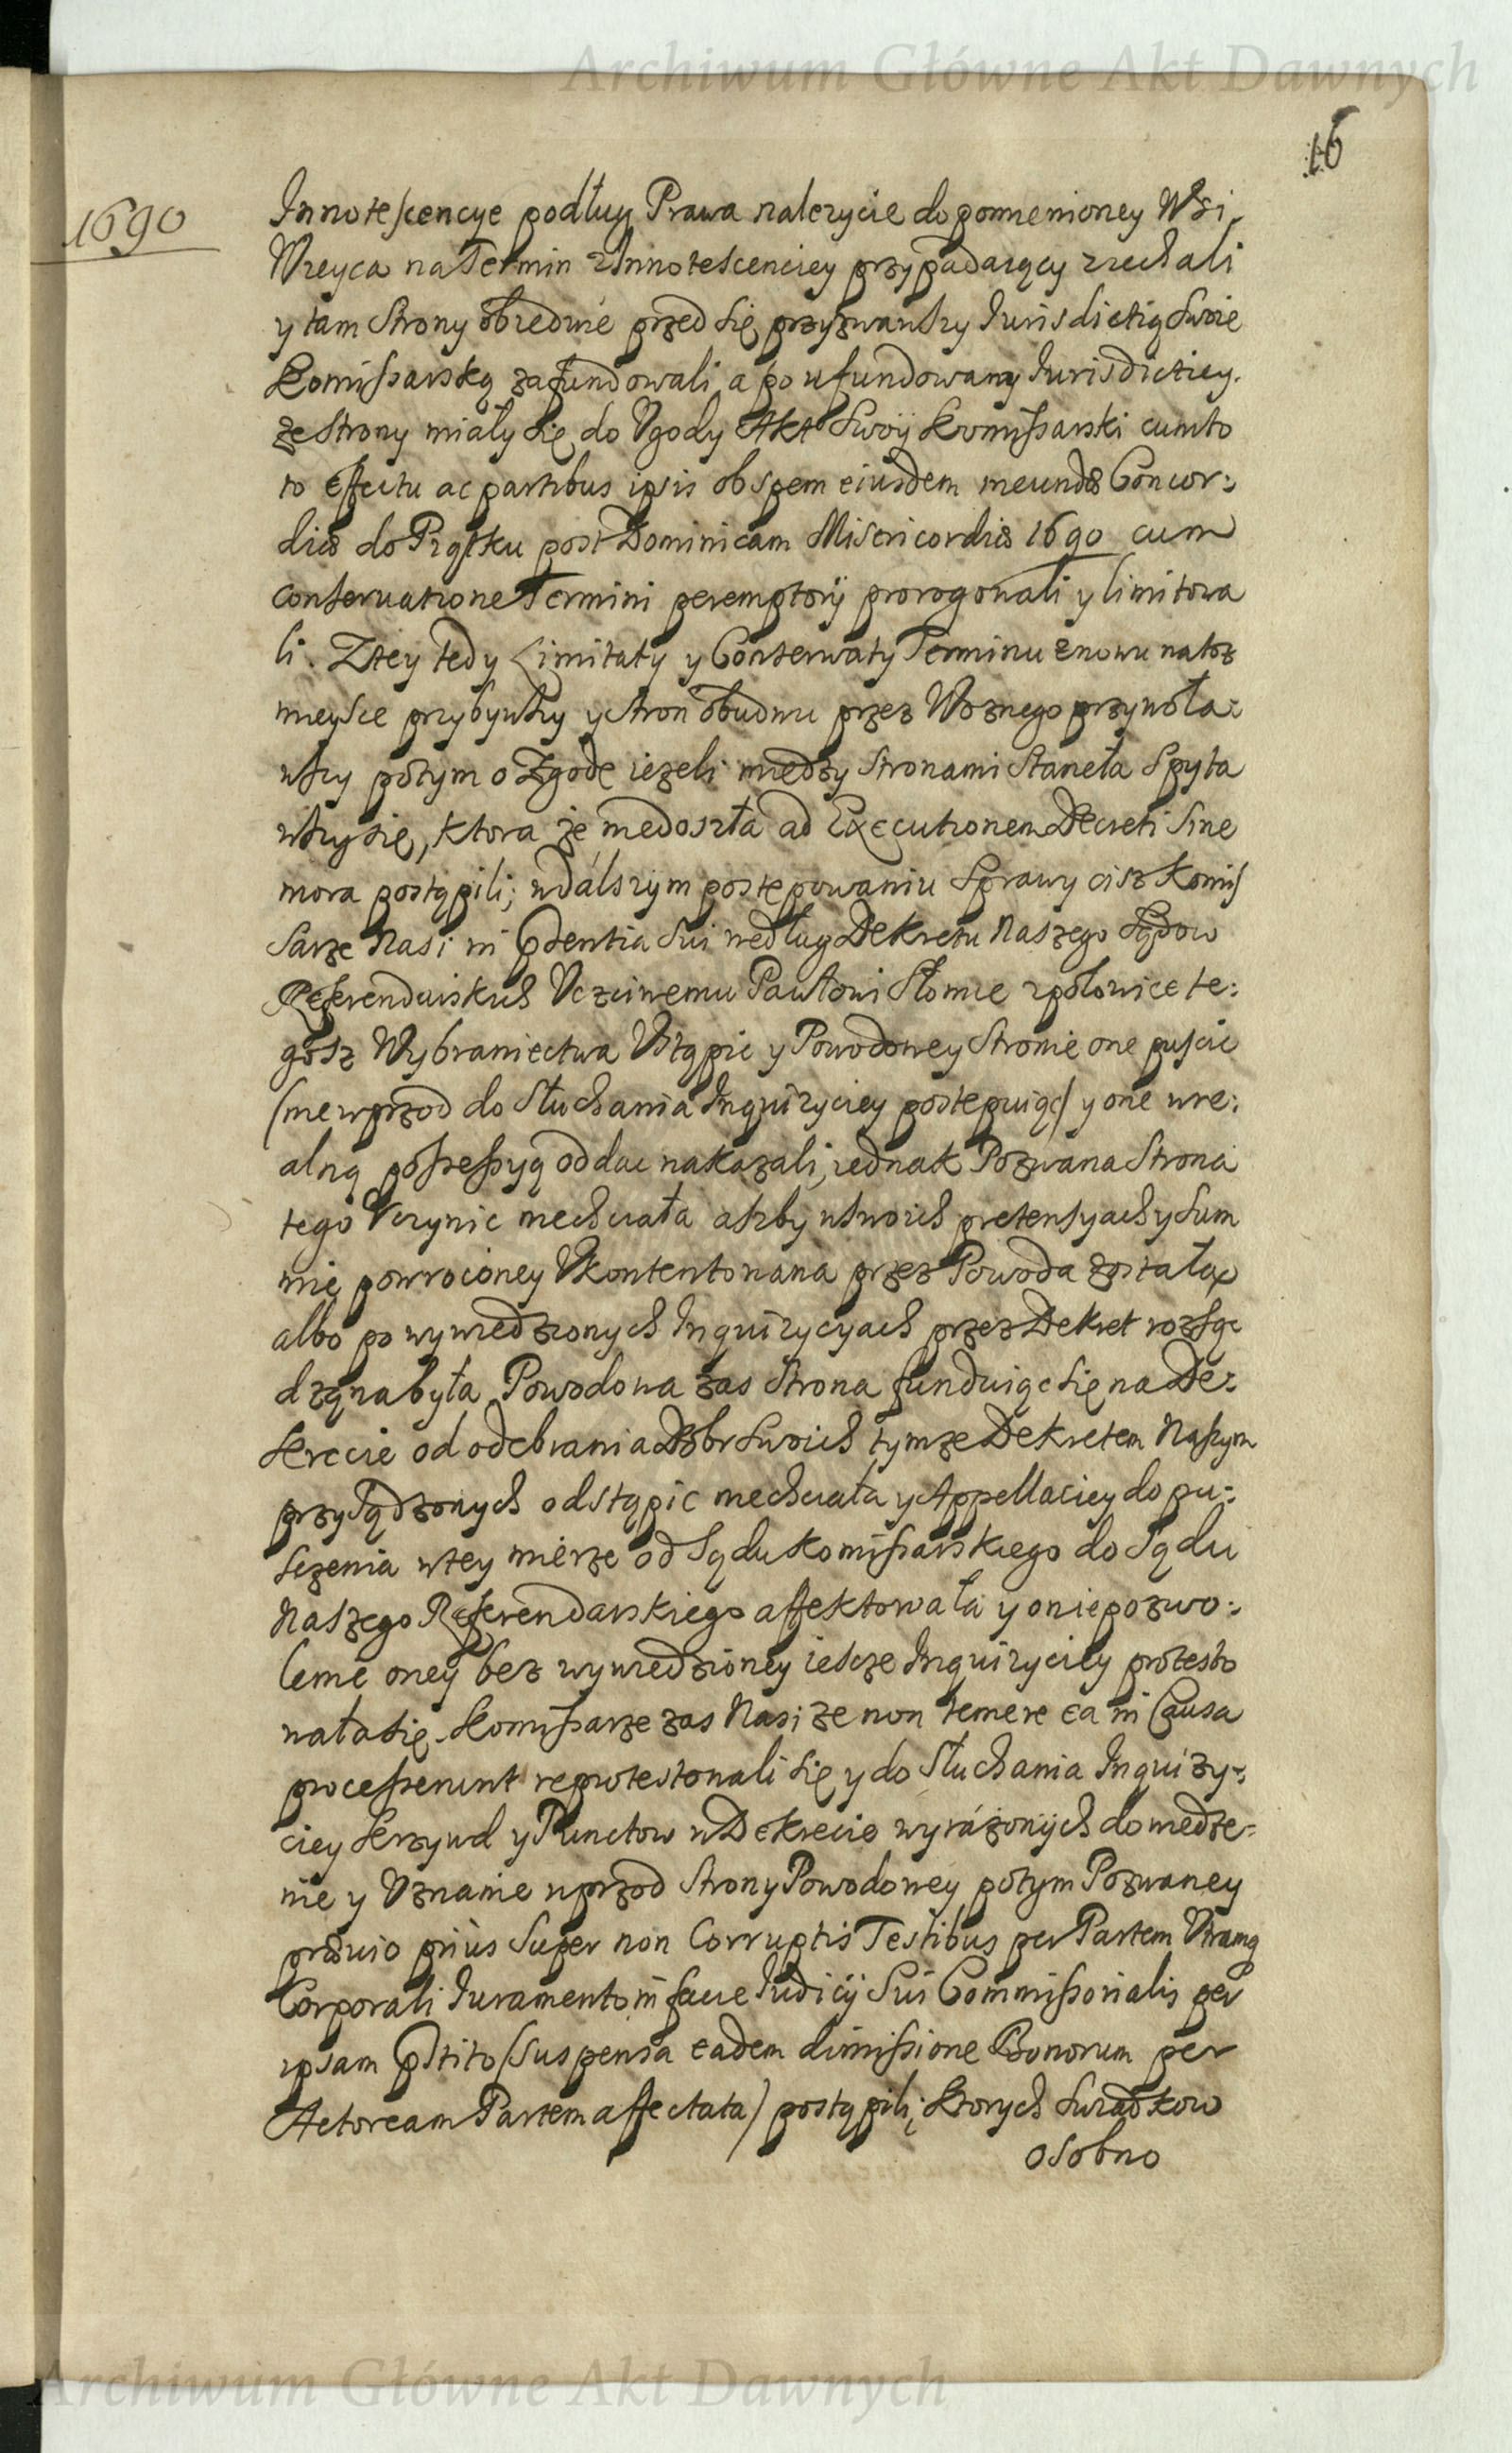 Archiwum Główne Akt Dawnych
16
1690
Innotescencye podług Prawa nalezycie do pomienioney Wsi
Wreyca na Termin z Innotescenciey przypadaiący ziechali
y tam Strony obiedwie przed się przyzwawszy Iurisdictią Swoie
Komissarską zafundowali a po ufundowaney Iurisdictiey.
ze Strony miały się do Ugody Akt Swoy Komissarski cum to
to effectu ac partibus ipsis ob spem eiusdem ineundæ Concor:
diæ do Piątku post Dominicam Misericordiæ 1690 cum
conservatione Termini peremptorij prorogowali y limitowa
li. Z tey tedy Limitaty y Conserwaty Terminu znowu na tosz
mieysce przybywszy y Stron obudwu przez Woznego przywoła:
wszy potym o Zgodę iezeli między Stronami Stanęła Spyta
wszy się, ktora ze niedoszła ad Executionem Decreti Sine
mora postąpili; w dálszym postępowaniu Sprawy cisz Komis
Sarze Nasi in Pdentia Sui według Dekretu Naszego Sądow
Referendarskich Uczciwemu Pawłowi Słomie zpołowice te:
gosz Wybraniectwa Ustąpic y Powodowey Stronie one puscic
(nie wprzod do Słuchania Inquizyciey postępuiąc) y one w re:
alną possessyą oddac nakazali, iednak Pozwana Strona
tego Uczynic niechciała aszby w Swoich pretensyach y Sum
mię powrociney Ukontentowana przez Powoda została
albo po wywiedzionych Inquizycyach przez Dekret rozsą
dzona była Powodowa zas Strona funduiąc się na De:
krecie od odebrania Dobr Swoich tymze Dekretem Naszym
przysądzonych odstąpic niechciała y Appellaciey dopu:
sczenia w tey mierze od Sądu Komissarskiego do Sądu
Naszego Referendarskiego affektowała y o niepozwo:
lenie oney bez wywiedzioney iescze Inquizyciey protesto
wała się. Komissarze zas Nasi ze non temere ea in Causa
processerunt reprotestowali się y do Słuchania Inquizy:
ciey Krzywd y Punctow w Dekrecie wyrázonych dowiedze:
nie y Uznanie wprzod Strony Powodowey potym Pozwaney
prævio prius Super non Corruptis Testibus per Partem Utramq
Corporali Iuramento in facie Iudicij Sui Commissorialis per
ipsam Pstito (Suspensa eadem dimissione Bonorum per
Actoream Partem affectata) postąpili; Ktorych Swiadkow
osobno
Archiwum Główne Akt Dawnych